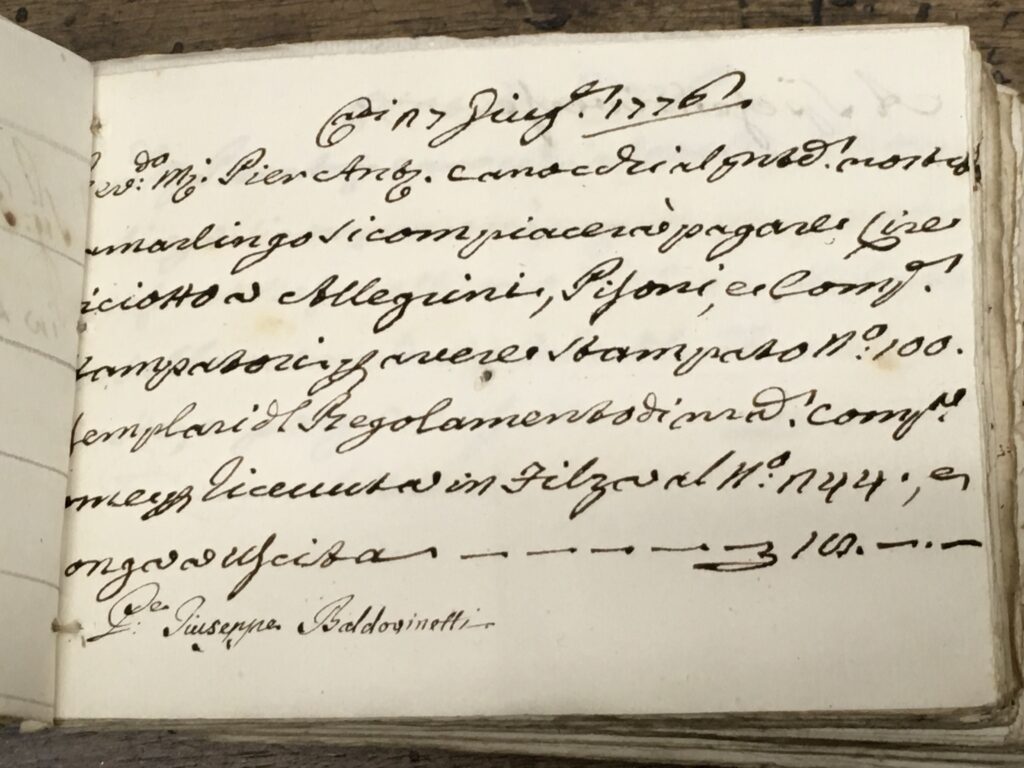 Adi 17 Giug.º 1776.
Rev.do Mg. Pier Ant.º Canocchi al pnte nostro
amarlingo si compiacerà pagare Lire
iciotto a Allegrini, Pisoni, e Comp.
tampatori p avere stampato N.º 100.
semplari dl Regolamento di nra Comp.
ome p ricevuta in Filza al N.º 144., e
onga a Uscita — — — — — £ 18. — . —
Giuseppe Baldovinetti